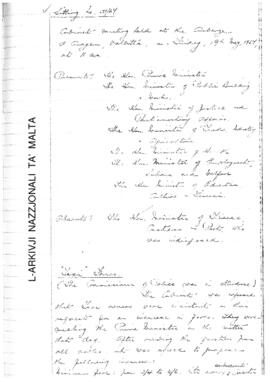 Sitting No. /64
Cabinet meeting held at the Auberge
d'Aragon Valletta, on Friday, May, 1964
at
Presents: The Hon. Prime Minister
The Hon. Minister of Public Building
& Works.
The Hon. Minister of Justice and
Parliamentary Affairs.
The Hon. Minister of Trade, Industry
& Agriculture
The Hon. Minister of
The Hon. Minister of Employment,
Labour and Welfare
The Hon. Minister of Education
Culture & Tourism.
Absents: The Hon. Minister of Finance,
Customs & Ports, who
was indisposed.
Taxi Fares
(The Commissioner of Police was in attendance)
The Cabinet was informed
that Taxi owners were insistent on their
request for an increase in fares. They were
meeting the Prime Minister on the matter
that day. After the question from
all sides it was agreed to propose
the following increases:
Minimum fare: from 3/4 to 4/6
L-ARKIVJI NAZZJONALI TA' MALTA